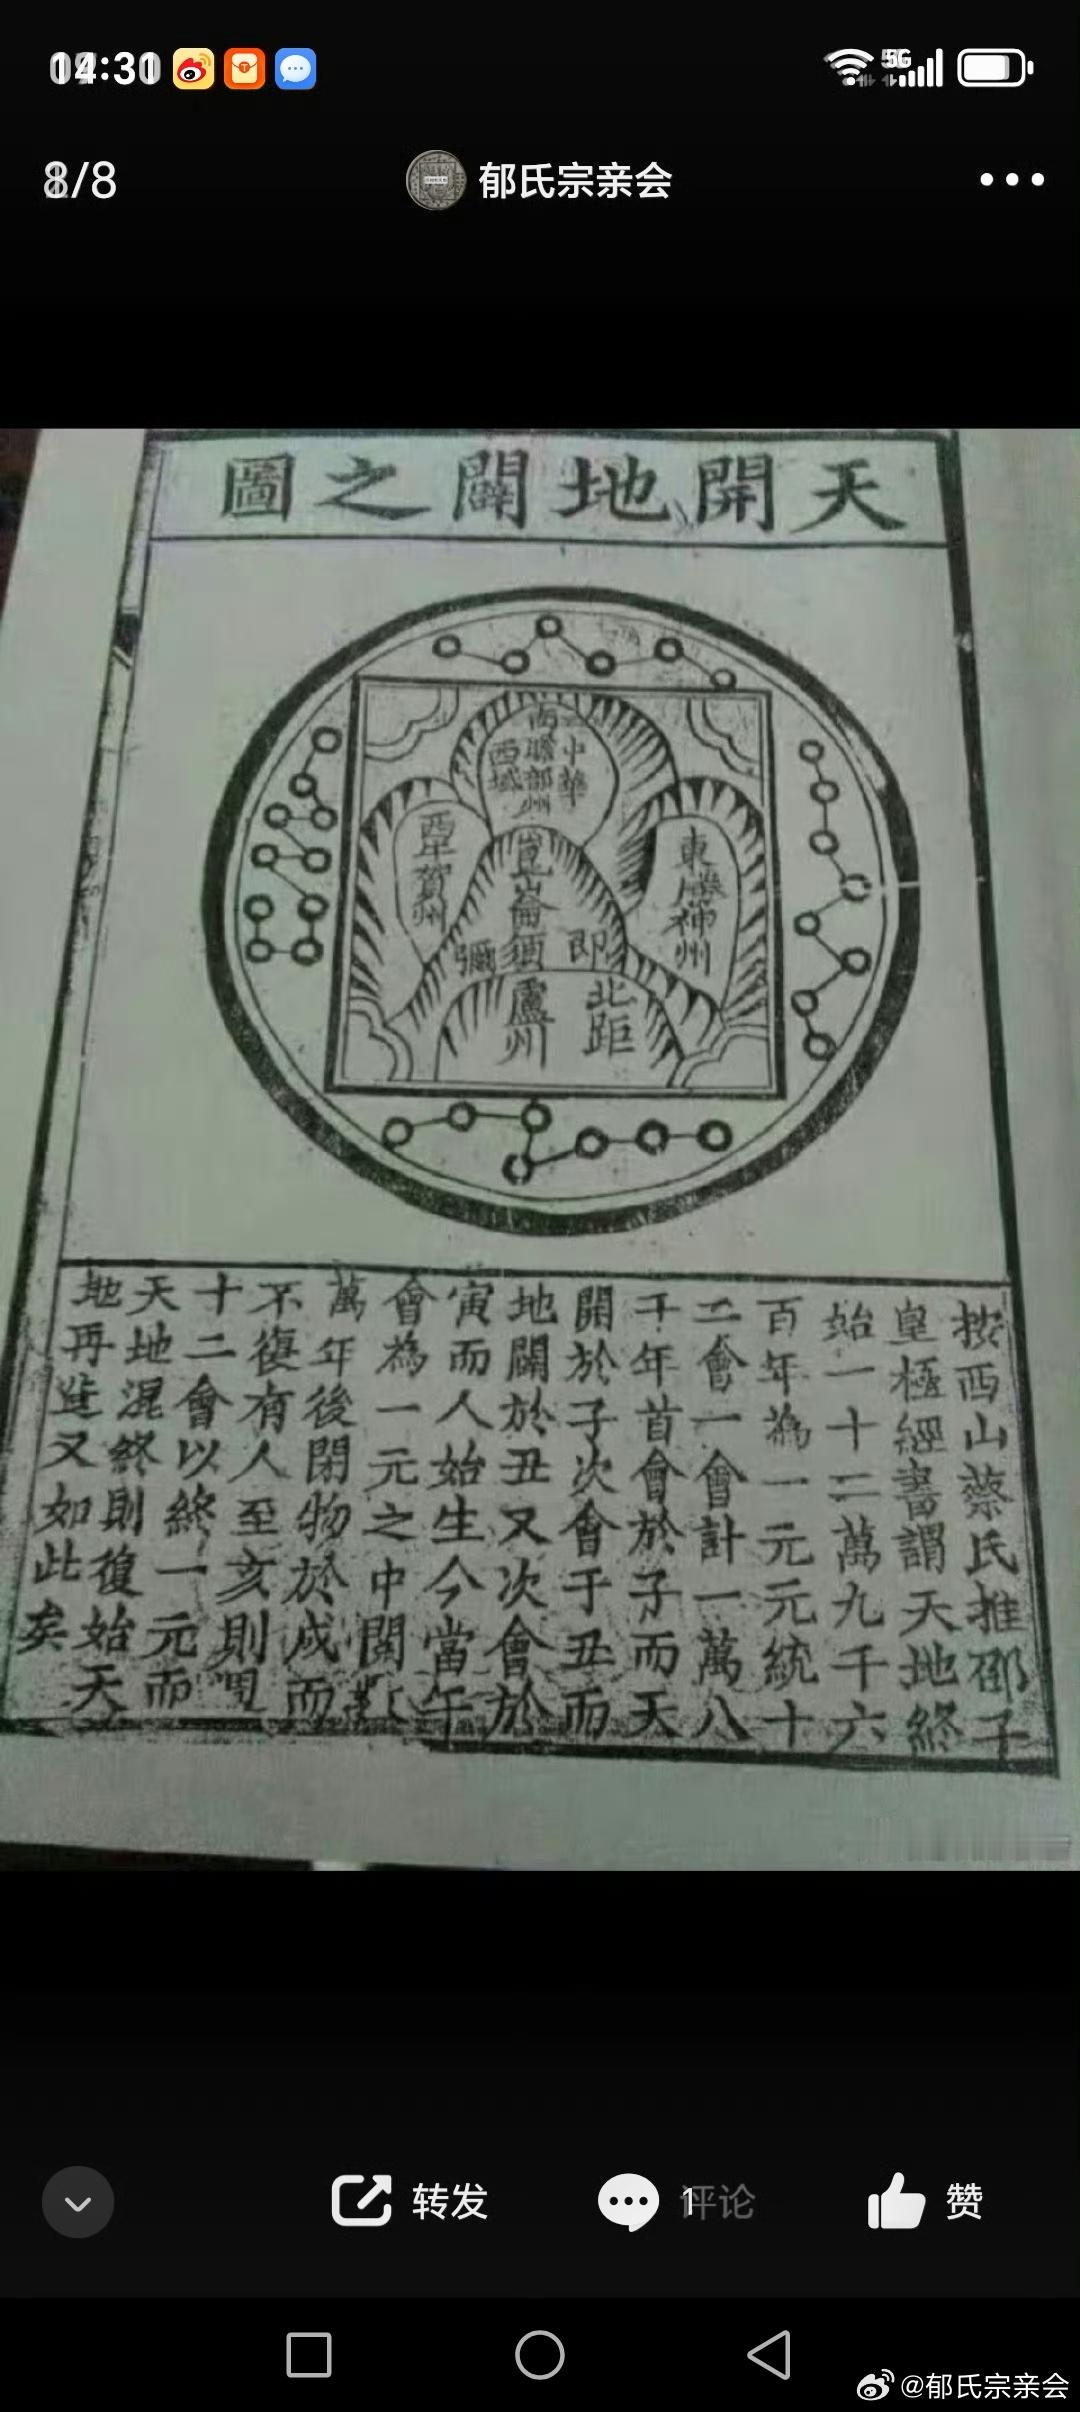 14:31
5G
8/8
郁氏宗亲会
天開地闢之圖
南贍部州
中華
西域
西牛賀州
東勝神州
崑崙
即須彌
北距盧州
按西山蔡氏推邵子
皇極經書謂天地終
始一十二萬九千六
百年為一元元統十
二會一會計一萬八
千年首會於子而天
開於子次會于丑而
地闢於丑又次會於
寅而人始生今當午
會為一元之中閱
萬年後閉物於戍而
不復有人至亥則
十二會以終一元而
天地混終則復始天
地再造又如此矣
转发
1
评论
赞
@郁氏宗亲会